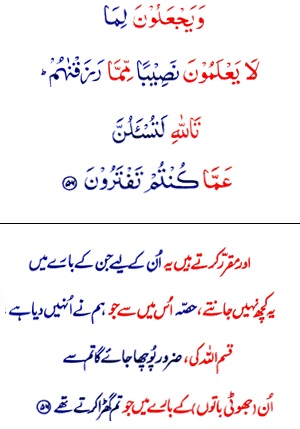 وَيَجْعَلُوْنَ لِمَا
لَا يَعْلَمُوْنَ نَصِيْبًا مِّمَّا رَزَقْنٰهُمْ ؕ
تَاللّٰهِ لَتُسْـَٔلُنَّ
عَمَّا كُنْتُمْ تَفْتَرُوْنَ ﴿۵۶﴾
اور مقرّر کرتے ہیں یہ اُن کے لیے جن کے بارے میں
یہ کچھ نہیں جانتے، حصّہ اُس میں سے جو ہم نے اُنہیں دیا ہے
قسم اللہ کی، ضرور پُوچھا جائے گا تم سے
اُن (جھوٹی باتوں) کے بارے میں جو تم گھڑا کرتے تھے ﴿۵۶﴾